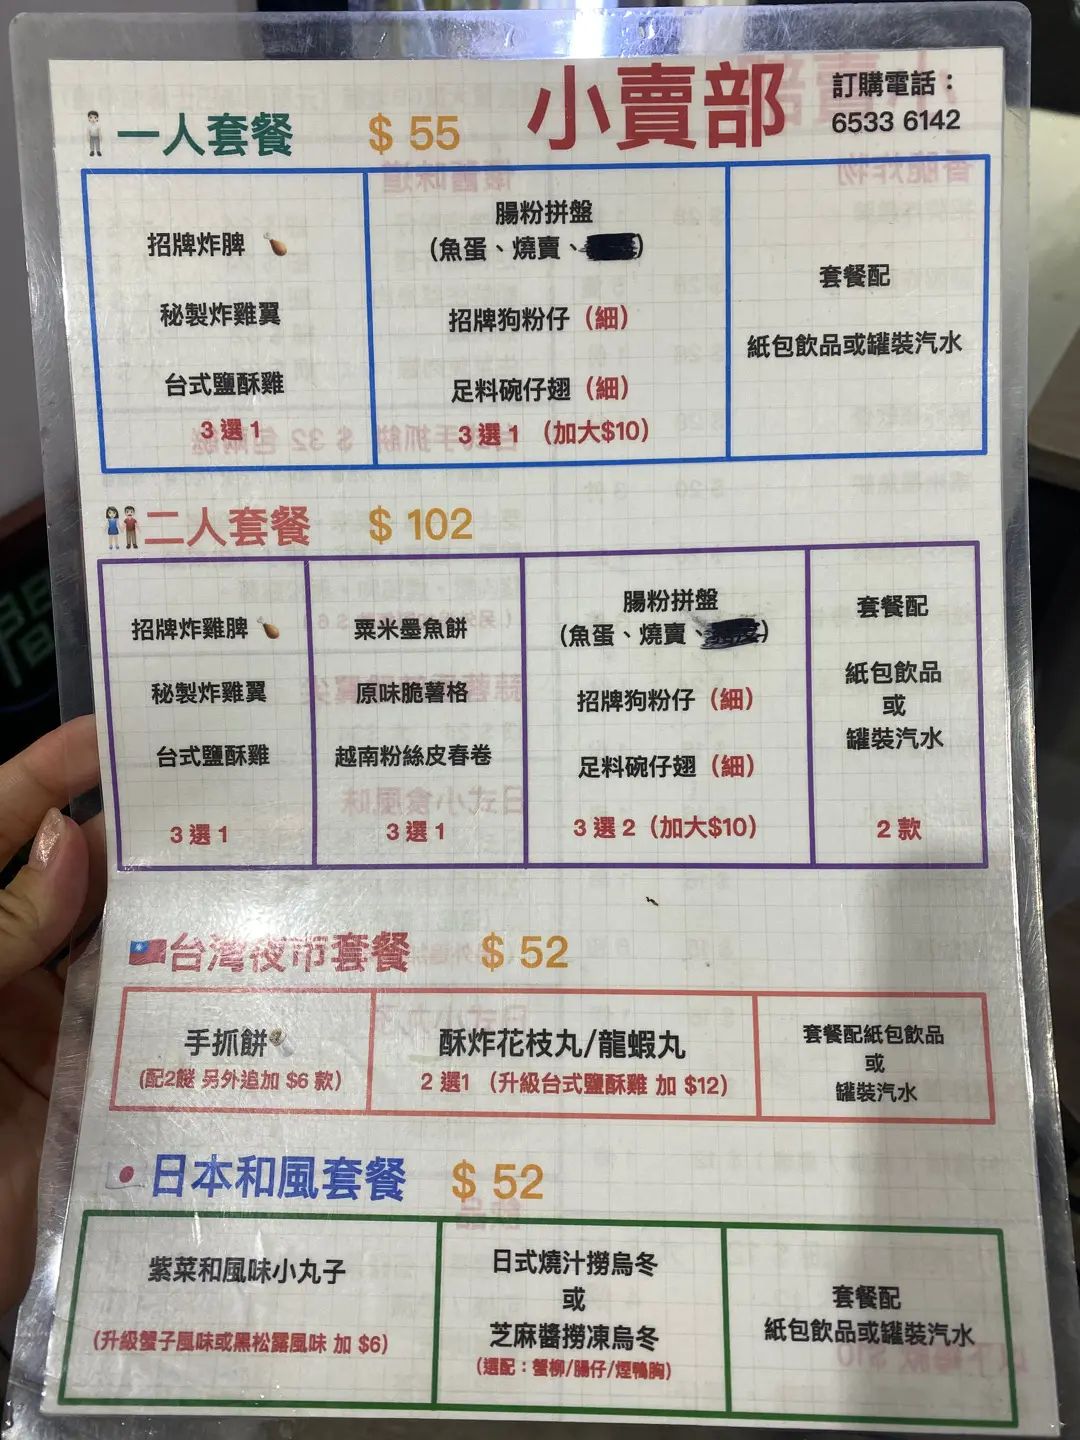 小賣部
訂購電話：
6533 6142
一人套餐 $ 55
招牌炸脾
秘製炸雞翼
台式鹽酥雞
3 選 1
腸粉拼盤
(魚蛋、燒賣、)
招牌狗粉仔（細）
足料碗仔翅（細）
3 選 1 （加大$10）
套餐配
紙包飲品或罐裝汽水
二人套餐 $ 102
招牌炸雞脾
秘製炸雞翼
台式鹽酥雞
3 選 1
粟米墨魚餅
原味脆薯格
越南粉絲皮春卷
3 選 1
腸粉拼盤
(魚蛋、燒賣、)
招牌狗粉仔（細）
足料碗仔翅（細）
3 選 2（加大$10）
套餐配
紙包飲品
或
罐裝汽水
2 款
台灣夜市套餐 $ 52
手抓餅
(配2餸 另外追加 $6 款)
酥炸花枝丸/龍蝦丸
2 選1 （升級台式鹽酥雞 加 $12）
套餐配紙包飲品
或
罐裝汽水
日本和風套餐 $ 52
紫菜和風味小丸子
(升級蟹子風味或黑松露風味 加 $6)
日式燒汁撈烏冬
或
芝麻醬撈凍烏冬
(選配：蟹柳/腸仔/煙鴨胸)
套餐配
紙包飲品或罐裝汽水